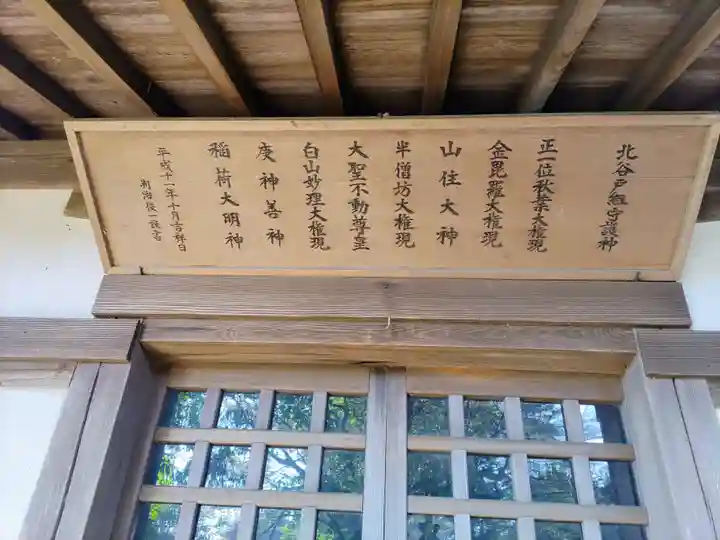 北谷戸組守護神
正一位秋葉大権現
金毘羅大権現
山住大神
半僧坊大権現
大聖不動尊皇
白山妙理大権現
庚神善神
稲荷大明神
平成十一年十月吉祥日